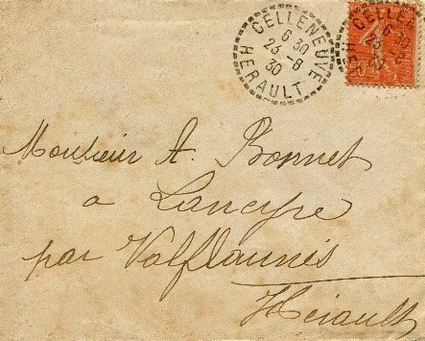 CELLENEUVE
6 30
23 -8
30
HERAULT
CELLEN
6 30
Monsieur A. Bonnet
a Lancyre
par Valflaunès
Hérault